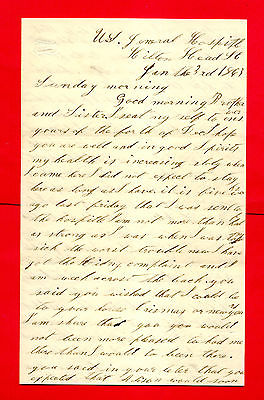 U.S. General Hospitl
Hilton Head SC
Jan the 3rd 186
Sunday morning
Good morning Brother
and Sister I seat my self to ans
yours of the forth of Dec I hop
you are well and in good spirits
my health is increasing sloly when
I came her I did not expect to stay
her as long as I have it is five
ago last friday that I was sent to
the hospitle I am not more than
as strong as I was when I was
sick the worst trouble now I have
got the kidny complaint and I
am weak across the back you
said you wished that I could be
to your house Crismas or newyears
I am shure that you would
not been more pleased to had me
there than I would to been there
you said in your leter that you
expected that would soon